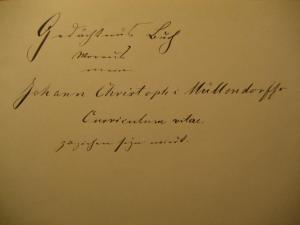 Gedächtnüs Buch
Woraus
mein
Johann Christoph: Müllendorffs
Curriculum vitae.
zuziehen seyn wird.